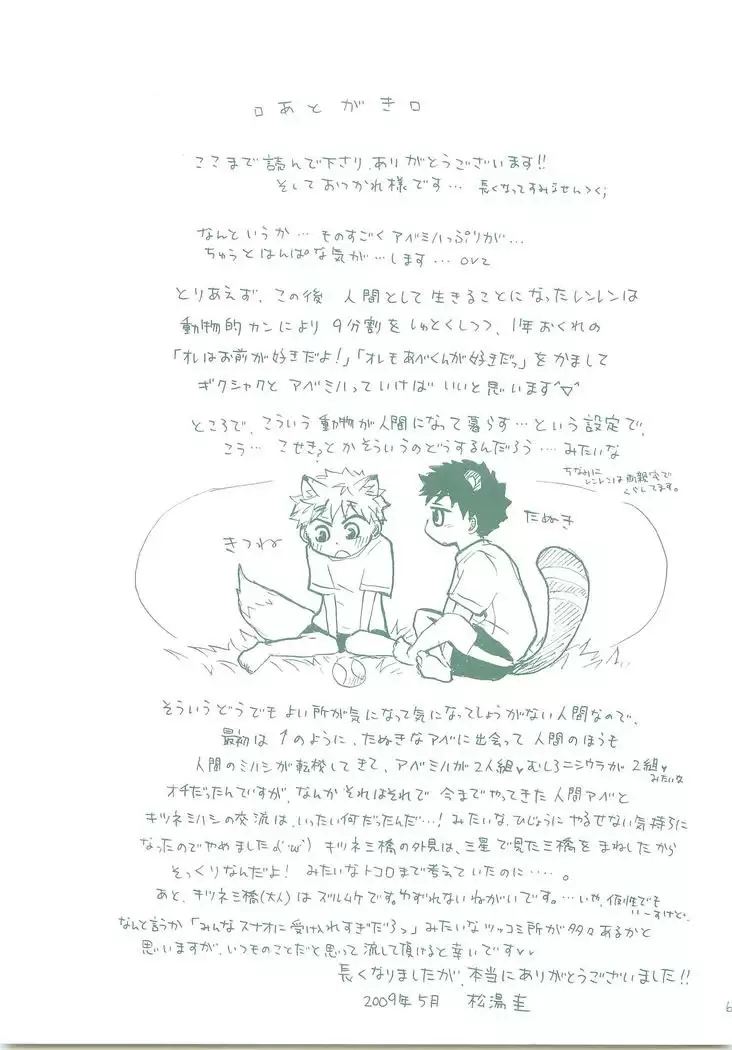 □あとがき□
ここまで読んで下さり、ありがとうございます!!
そしておつかれ様です… 長くなってすみません>く;
なんというか…ものすごくアベミハっぷりが…
ちゅうとはんぱな気が…します…orz
とりあえず、この後 人間として生きることになったレンレンは
動物的カンにより 9分割をしゅとくしつつ、1年おくれの
「オレはお前が好きだよ!」「オレもあべくんが好きだっ」をかまして
ギクシャクと アベミハっていけば いいと思います^▽^
ところで、こういう動物が人間になって暮らす…という設定で、
こう… こせき?とかそういうのどうするんだろう…みたいな
ちなみに
レンレンは両親宅で
くらしてます。
きつね
たぬき
そういうどうでもよい所が気になって気になってしょうがない人間なので、
最初は↑のように、たぬきなアベに出会って人間のほうも
人間のミハシが転校してきて、アベミハが2人組♥むしろニシウラが2組♥
みたいな
オチだったんですが、なんかそれはそれで今までやってきた人間アベと
キツネミハシの交流は、いったい何だったんだ…!みたいな、ひじょうにやるせない気持ちに
なったのでやめました(´'ω') キツネ三橋の外見は、三星で見た三橋をまねしたから
そっくりなんだよ! みたいなトコロまで考えていたのに……。
あと、キツネ三橋(大人)はズルムケです。ゆずれないねがいです。…いや、仮性でも
いーすけど、
なんと言うか「みんなスナオに受け入れすぎだろっ」みたいなツッコミ所が多々あるかと
思いますが、いつものことだと思って流して頂けると幸いです♥♥
長くなりましたが、本当にありがとうございました!!
2009年5月 松湯圭
6